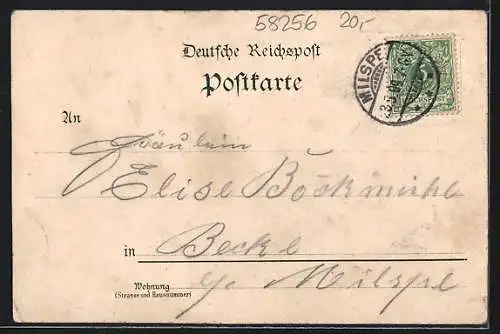 58256 20,-
Deutsche Reichspost
Postkarte
MILSPE
An
Fräulein
Elise Böckmühl
in Becke
Milspe
Wohnung
(Strasse und Hausnummer)